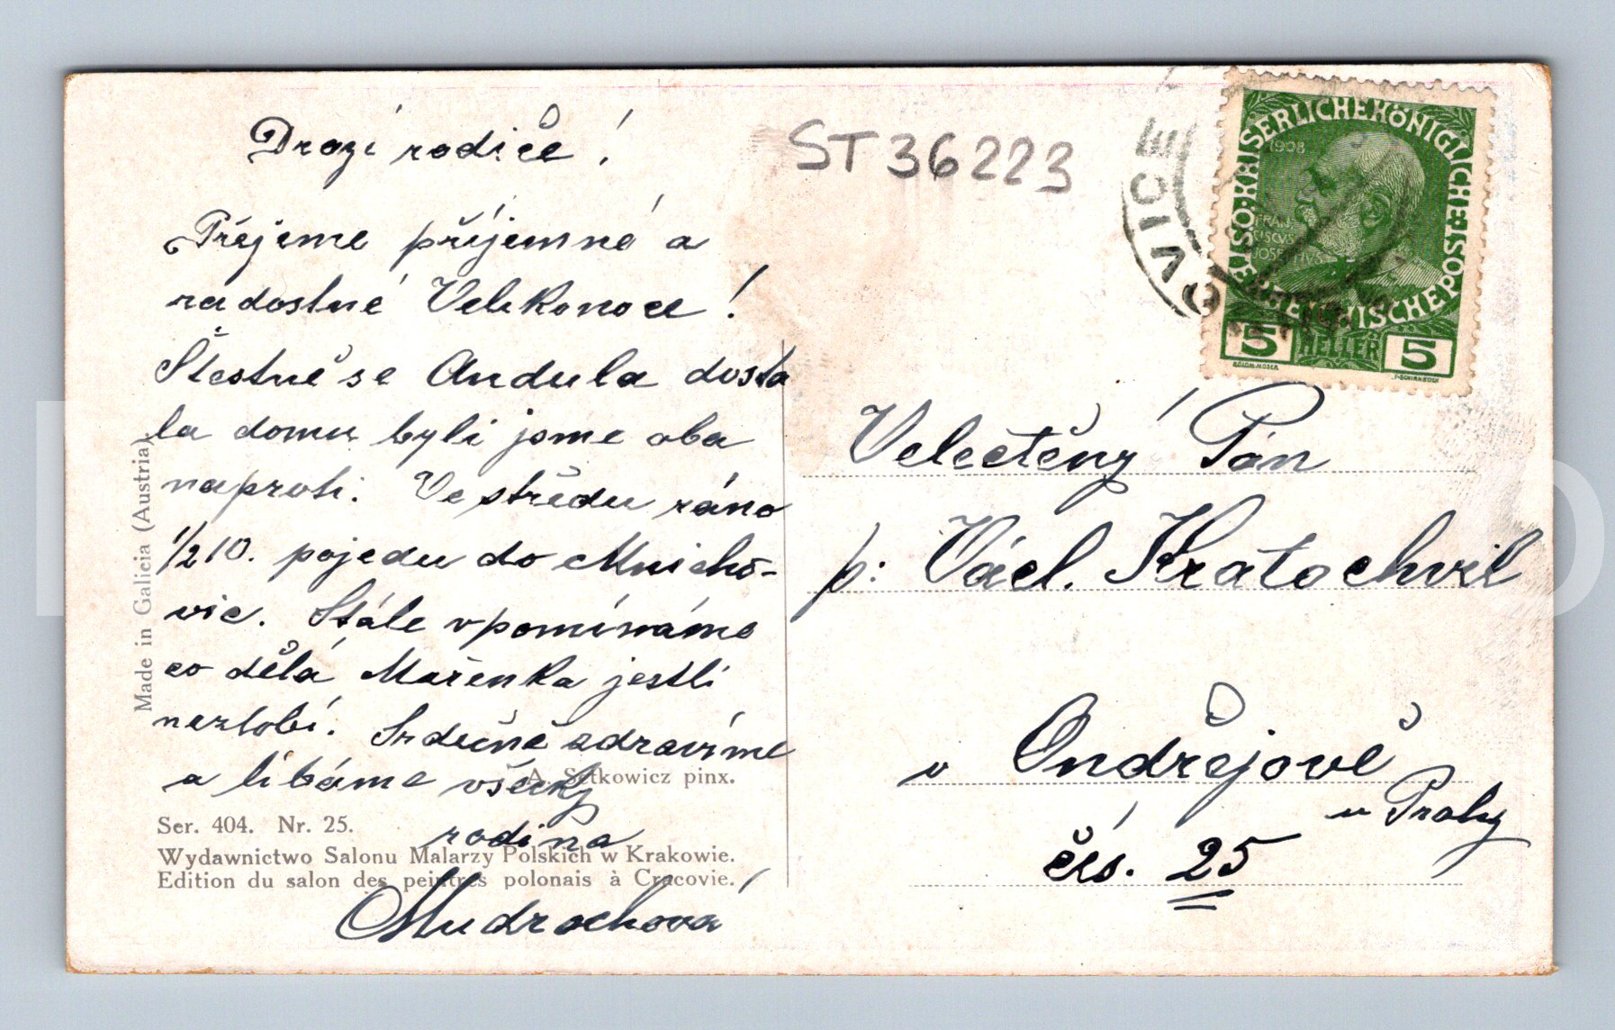 Drazí rodiče!
Přejeme příjemné a
radostné Velikonoce!
Štestně se Andula dosta
la domu byli jsme oba
naproti. Ve středu ráno
1/2 10. pojedu do Mnicho-
vic. Stále vpomínáme
co dělá Mařenka jestli
nezlobí. Srdečně zdravíme
a líbáme všecky
rodina
Mudrochová
Made in Galicia (Austria).
A. Setkowicz pinx.
Ser. 404. Nr. 25.
Wydawnictwo Salonu Malarzy Polskich w Krakowie.
Edition du salon des peintres polonais à Cracovie.
ST 36223
VICE
KAISERLICHE KÖNIGLICHE
ÖSTERREICHISCHE POST
1908
FRAN
CISCVS
JOSEPHVS
5 HELLER 5
Velectěný Pán
p: Václ. Kratochvil
v Ondřejově
u Prahy
čís. 25